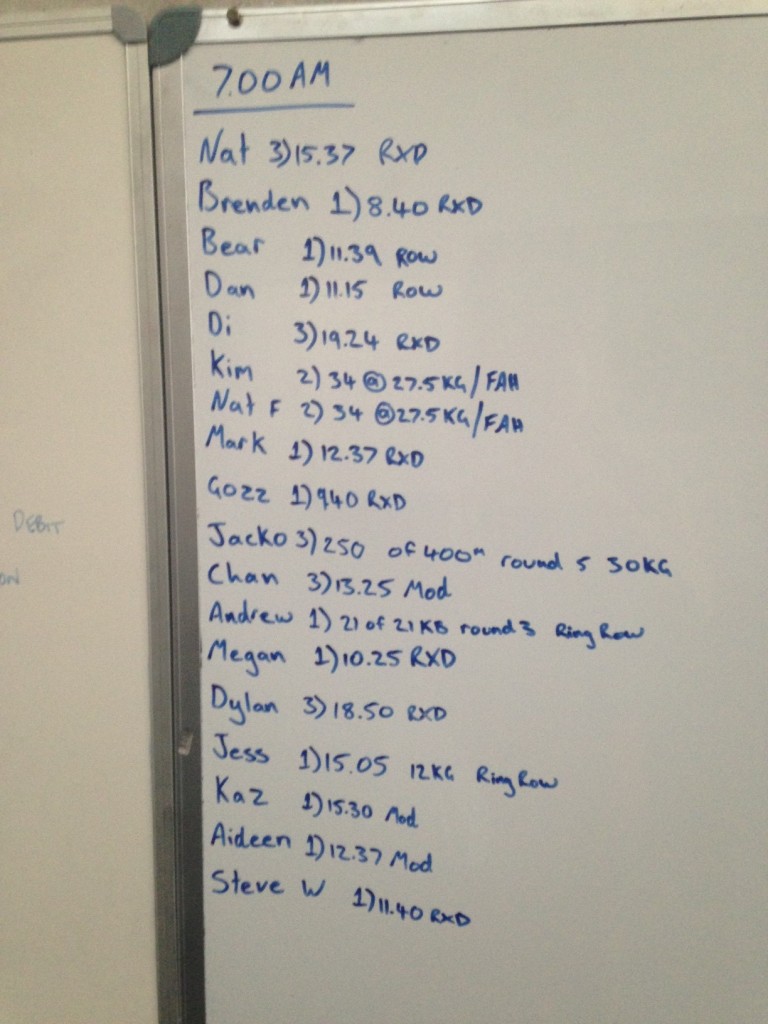 7.00 AM
Nat 3) 15.37 RXD
Brenden 1) 8.40 RXD
Bear 1) 11.39 ROW
Dan 1) 11.15 ROW
Di 3) 19.24 RXD
Kim 2) 34 @ 27.5KG/FAH
Nat F 2) 34 @ 27.5KG/FAH
Mark 1) 12.37 RXD
Gozz 1) 940 RXD
Jacko 3) 250 of 400m round 5 30KG
Chan 3) 13.25 Mod
Andrew 1) 21 of 21 KB round 3 Ring Row
Megan 1) 10.25 RXD
Dylan 3) 18.50 RXD
Jess 1) 15.05 12KG Ring Row
Kaz 1) 15.30 Mod
Aideen 1) 12.37 Mod
Steve W 1) 11.40 RXD
DEBIT